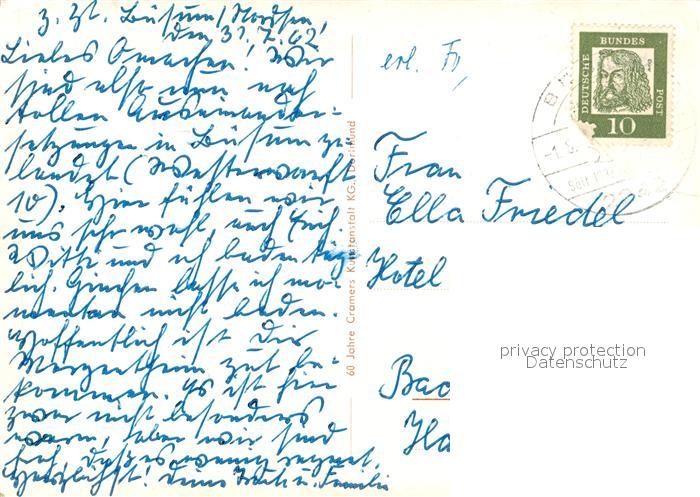 z. Zt. Büsum/Nordsee,
den 31.7.62
Liebes Omachen! Wir
sind also nun nach
tollen Auseinander=
setzungen in Büsum ge=
landet (Westerwarft
10). Hier fühlen wir
uns sehr wohl, auch Frch.
und ich baden täg=
lich. lasse ich mo=
mentan nicht baden.
Hoffentlich ist dir
Mergentheim gut be=
kommen. Es ist hier
zwar nicht besonders
warm, aber wir sind
froh, daß es wenig regnet.
Herzlichst! Deine u. Familie
60 Jahre Cramers Kunstanstalt KG, Dortmund
erl. Fr,
DEUTSCHE BUNDES POST
10
Frau
Ella Friedel
Hotel
privacy protection
Datenschutz
Bad
Ha